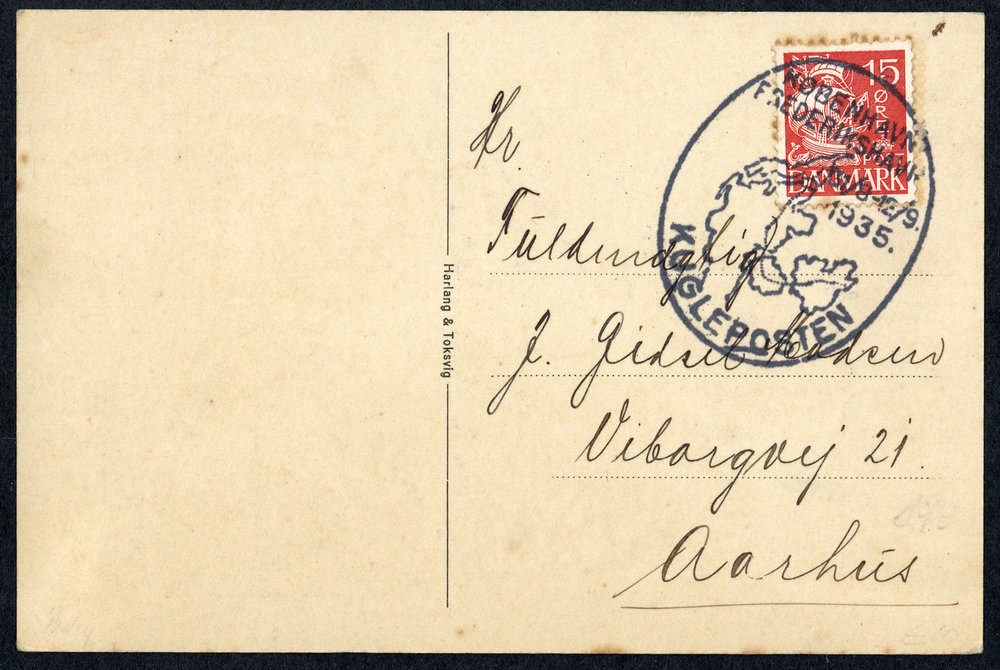 15
ØRE
DANMARK
KØBENHAVN
FREDERIKSHAVN
-12/9.
1935.
KUGLEPOSTEN
Harlang & Toksvig
Hr.
Fuldmægtig
J. Gidsel Madsen
Viborgvej 21.
Aarhus